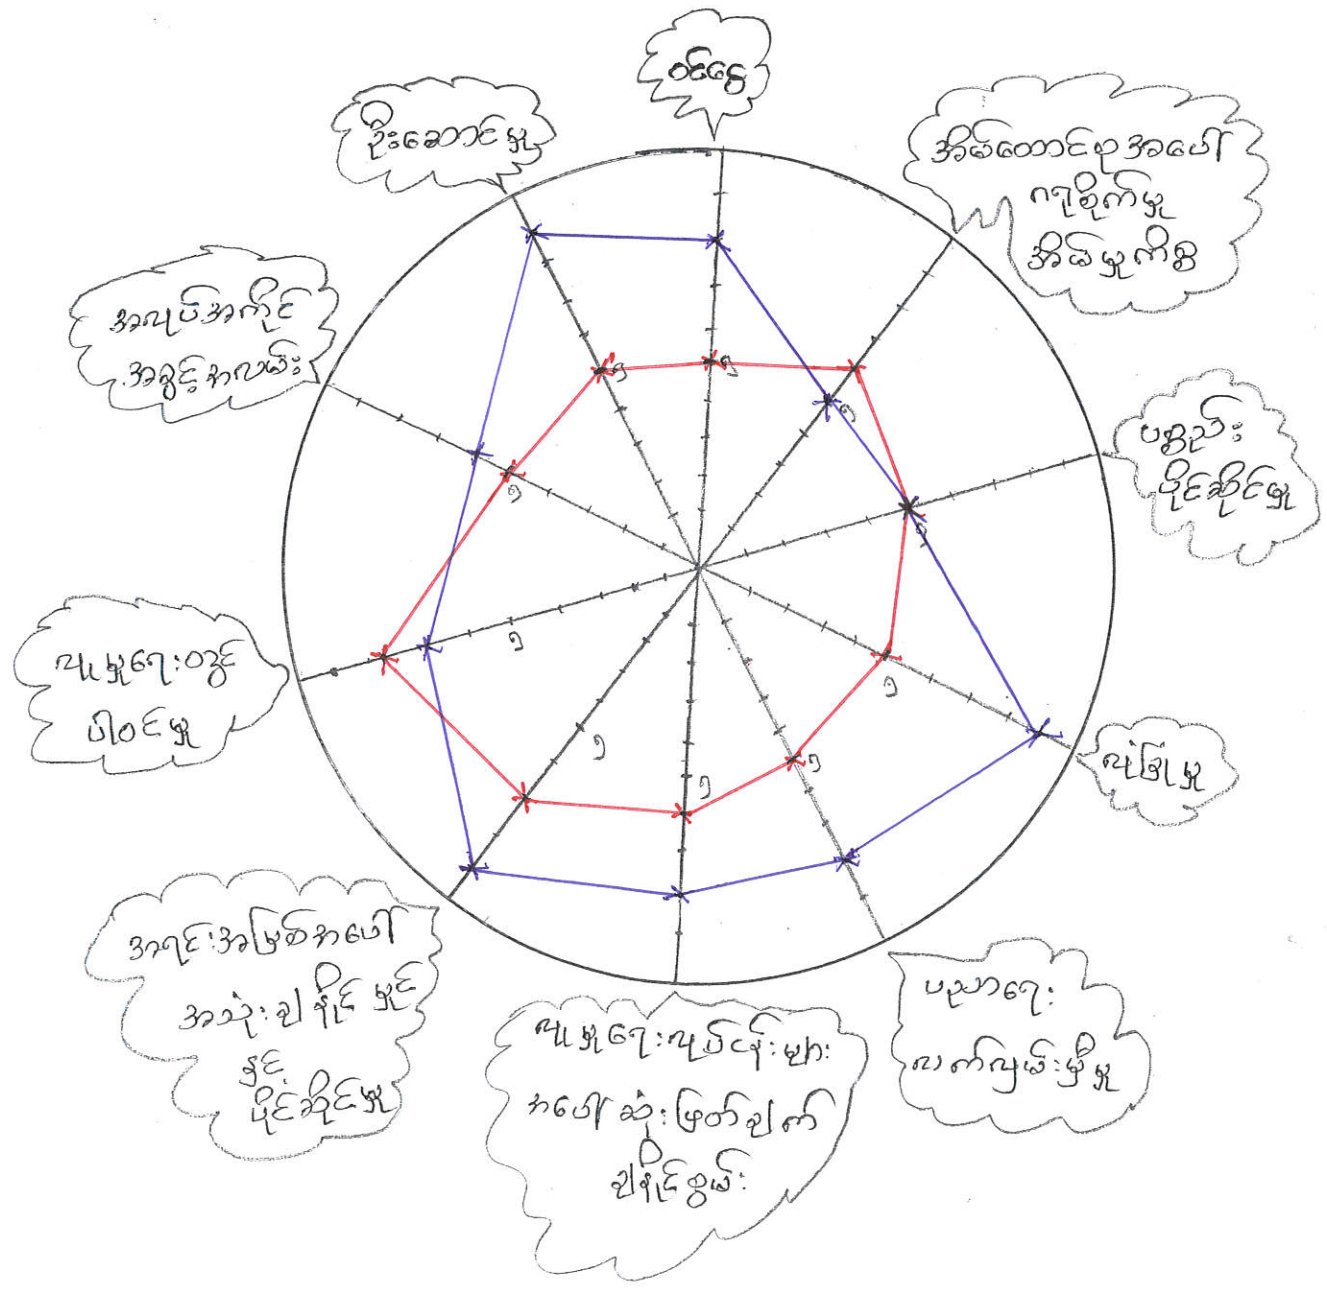 ဝင်ငွေ
အိမ်ထောင်စုအပေါ်
ဂရုစိုက်မှု
အိမ်မှုကိစ္စ
ပစ္စည်း
ပိုင်ဆိုင်မှု
လုံခြုံမှု
ပညာရေး
လက်လှမ်းမှီမှု
လူမှုရေးလုပ်ငန်းများ
အပေါ်ဆုံးဖြတ်ချက်
ချနိုင်စွမ်း
အရင်းအမြစ်အပေါ်
အသုံးချနိုင်မှုင်
နှင်
ပိုင်ဆိုင်မှု
လူမှုရေးဝဒွင်
ပါဝင်မှု
အလုပ်အကိုင်
အခွင့်အလမ်း
ဦးဆောင်မှု
၅
၅
၅
၅
၅
၅
၅
၅
၅
၅